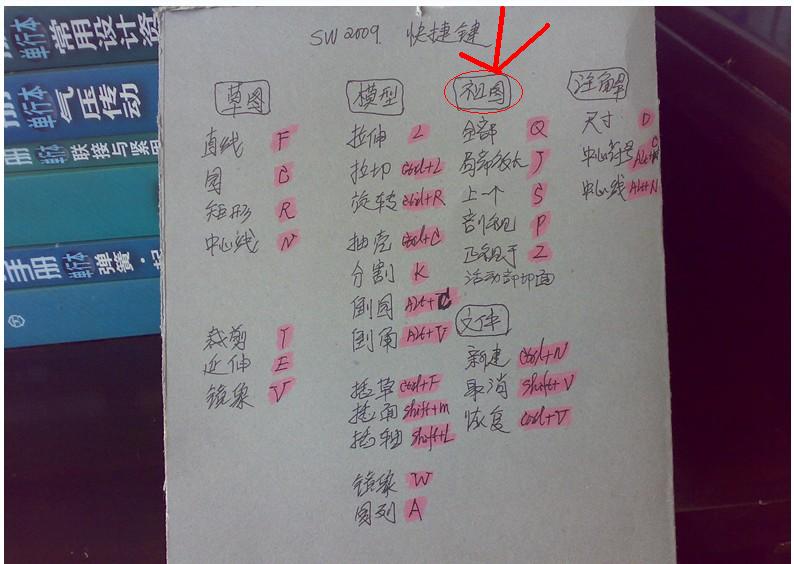 常用设计资
单行本
册
气压传动
单行本
册
联接与紧固
单行本
手册
弹簧·起
单行本
SW 2009. 快捷键
草图
直线 F
圆 C
矩形 R
中心线 N
裁剪 T
延伸 E
镜象 V
模型
拉伸 L
拉切 Ctrl+L
旋转 Ctrl+R
抽壳 Ctrl+C
分割 K
倒圆 Alt+C
倒角 Alt+V
插草 Ctrl+F
插面 Shift+m
插轴 Shift+L
镜象 W
圆列 A
视图
全部 Q
局部放大 J
上一个 S
剖视 P
正视于 Z
活动部切面
文件
新建 Ctrl+N
取消 Shift+V
恢复 Ctrl+V
注解
尺寸 D
中心符号 Alt+C
中心线 Alt+N